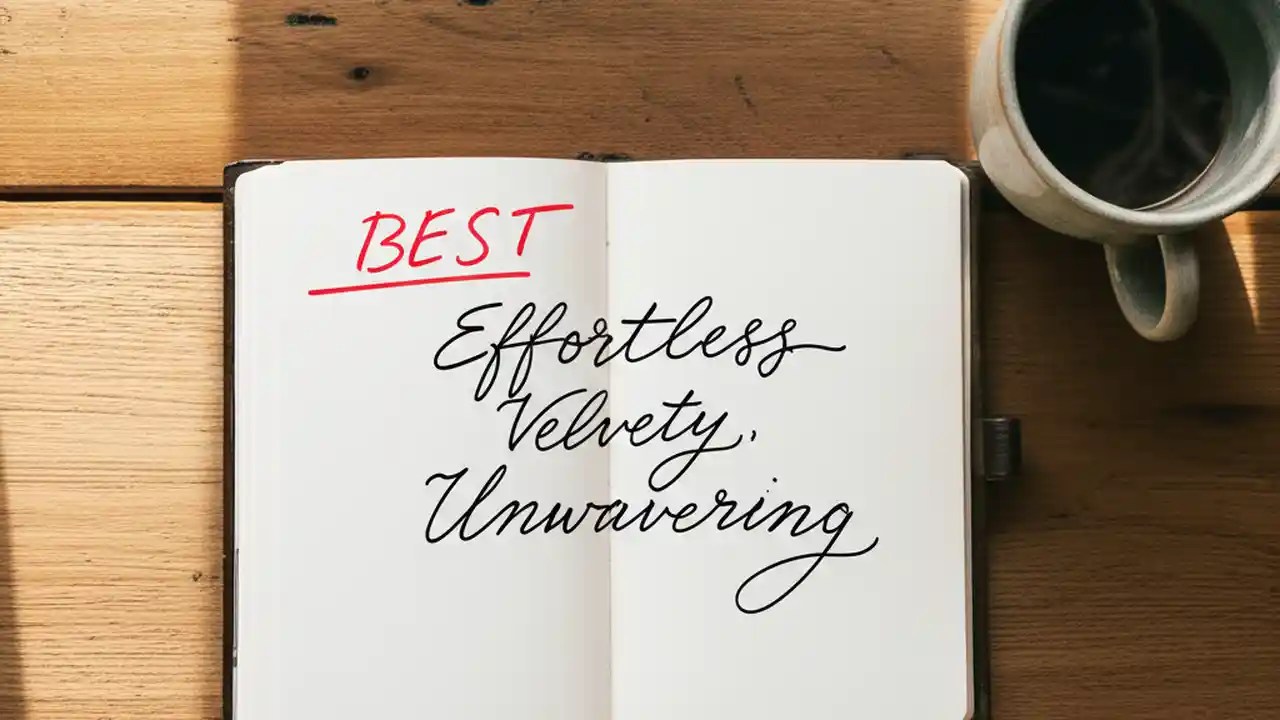 BEST
Effortless
Velvety,
Unwavering